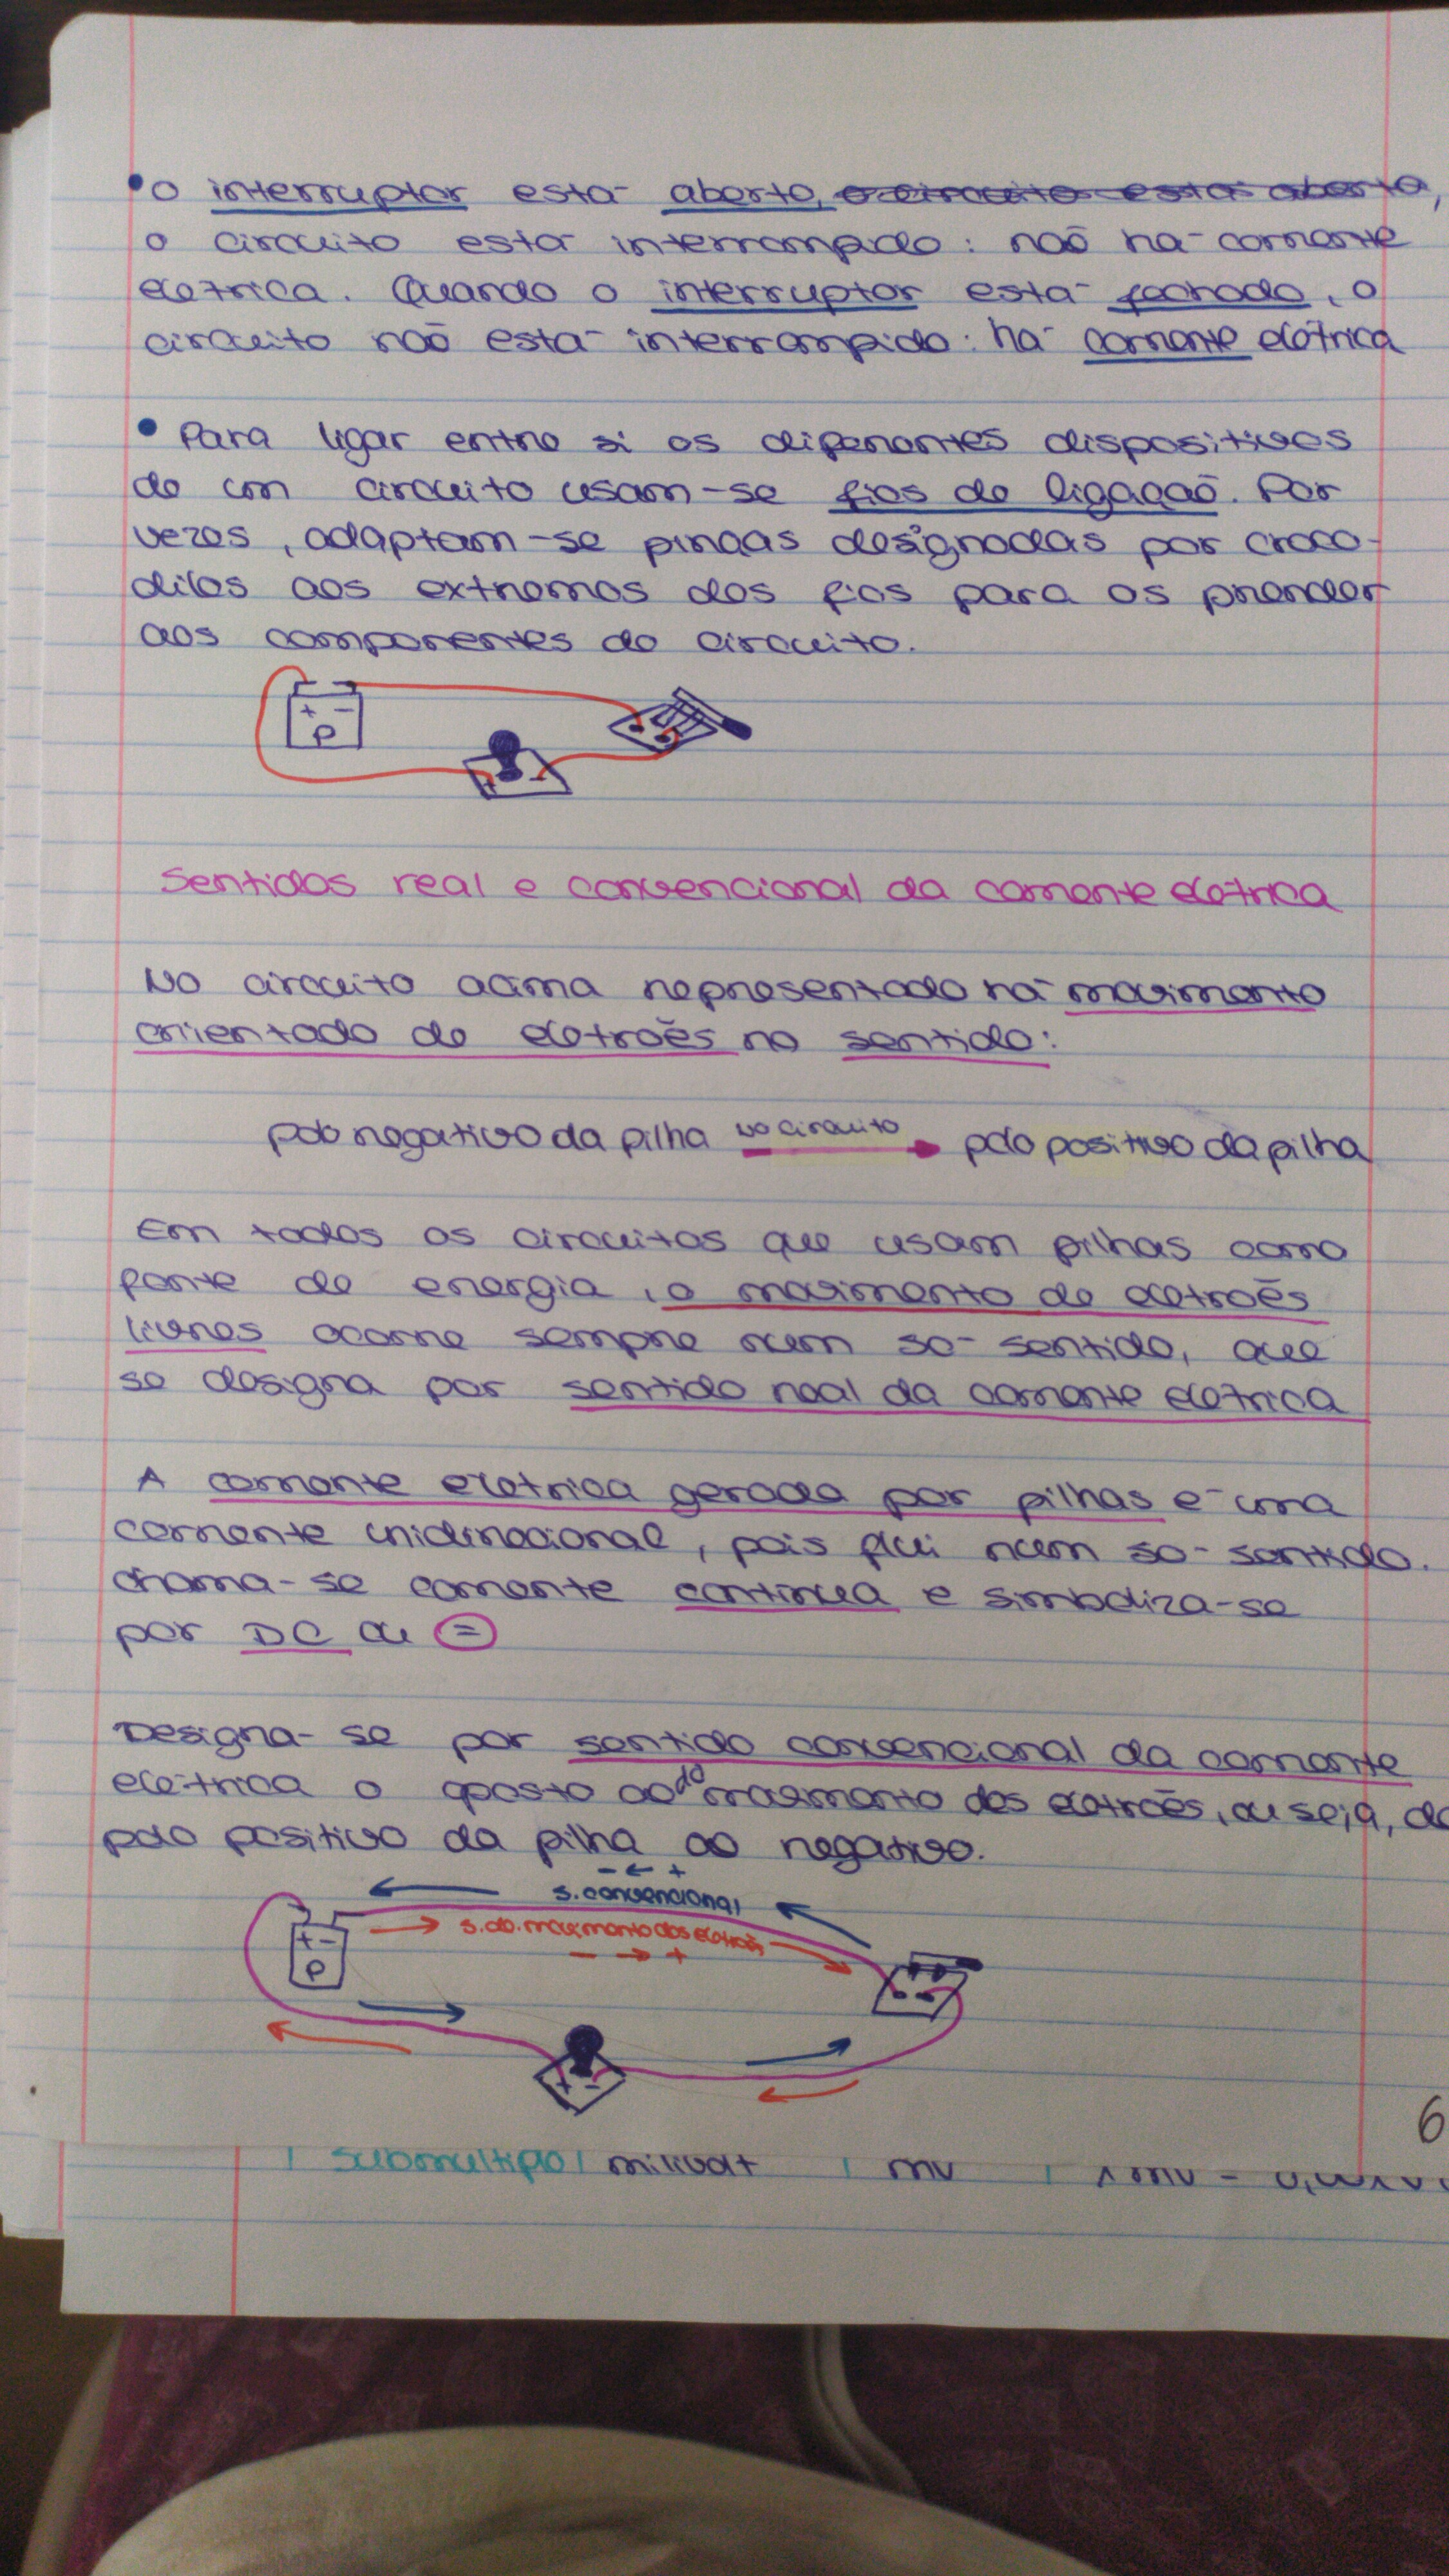 • O interruptor está aberto, o circuito está aberto,
o circuito está interrompido: não há corrente
elétrica. Quando o interruptor está fechado, o
circuito não está interrompido: há corrente elétrica
• Para ligar entre si os diferentes dispositivos
de um circuito usam-se fios de ligação. Por
vezes, adaptam-se pinças designadas por croco-
dilos aos extremos dos fios para os prender
aos componentes do circuito.
+ -
P
+ -
Sentidos real e convencional da corrente elétrica
No circuito acima representado há movimento
orientado de eletrões no sentido:
polo negativo da pilha no circuito → polo positivo da pilha
Em todos os circuitos que usam pilhas como
fonte de energia, o movimento de eletrões
livres ocorre sempre num só sentido, que
se designa por sentido real da corrente elétrica
A corrente elétrica gerada por pilhas é uma
corrente unidirecional, pois flui num só sentido.
Chama-se corrente contínua e simboliza-se
por DC ou =
Designa-se por sentido convencional da corrente
elétrica o oposto ao do movimento dos eletrões, ou seja, do
polo positivo da pilha ao negativo.
- ← +
s. convencional
s. do. movimento dos eletrões
- → +
+ -
P
+ -
6
submúltiplo milivolt mV 1 mV =